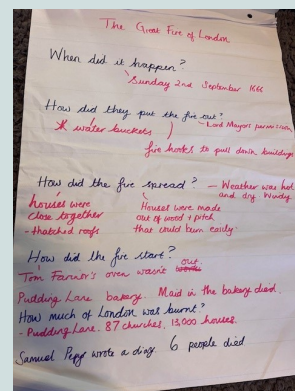 The Great Fire of London
When did it happen?
Sunday 2nd September 1666
How did they put the fire out?
* water buckets
- Lord Mayor's permission
fire hooks to pull down buildings
How did the fire spread? - Weather was hot and dry Windy
houses were
close together
- thatched roofs
Houses were made
out of wood + pitch
that could burn easily.
How did the fire start?
Tom Farinor's oven wasn't out.
Pudding Lane bakery. Maid in the bakery died.
How much of London was burnt?
- Pudding Lane. 87 churches, 13,000 houses.
Samuel Pepys wrote a diary. 6 people died